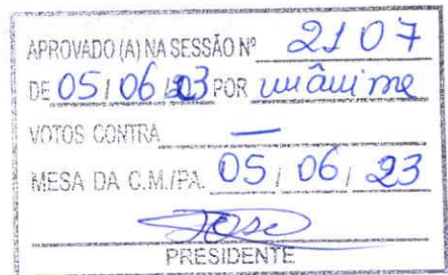 APROVADO (A) NA SESSÃO Nº 2107
DE 05 / 06 / 23 POR unânime
VOTOS CONTRA —
MESA DA C.M./PA. 05 / 06 / 23
PRESIDENTE